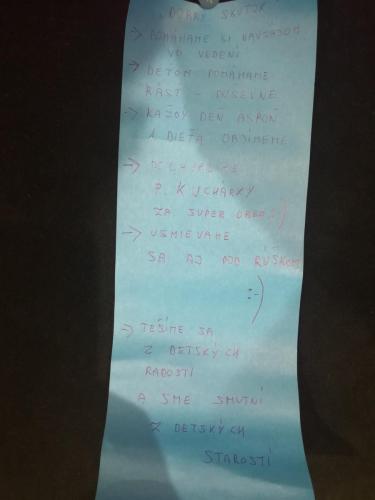 DOBRÝ SKUTOK
→ POMÁHAME SI NAVZÁJOM
VO VEDENÍ
→ DEŤOM POMÁHAME
RÁSŤ - DUŠEVNE
→ KAŽDÝ DEŇ ASPOŇ
1 DIEŤA OBJÍMEME
→
P. KUCHÁRKY
ZA SUPER OBED :)
→ USMIEVAME
SA AJ POD RÚŠKOM
:-)
→ TEŠÍME SA
Z DETSKÝCH
RADOSTÍ
A SME SMUTNÍ
Z DETSKÝCH
STAROSTÍ